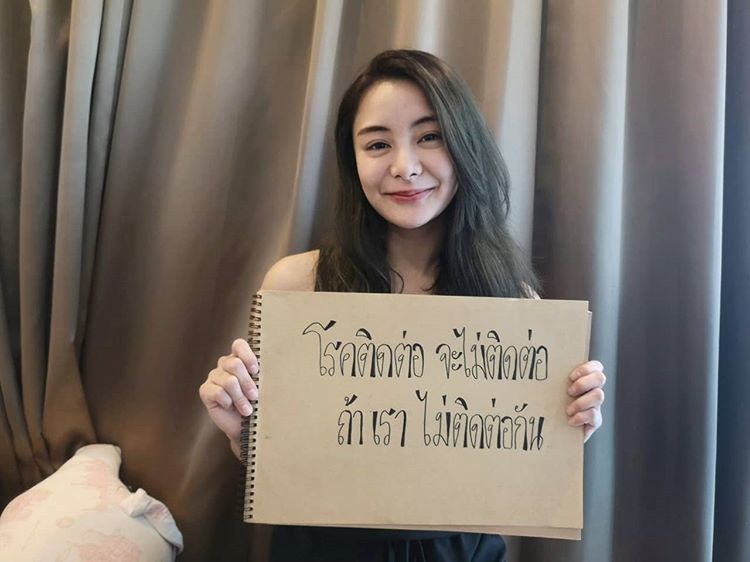 โรคติดต่อ จะไม่ติดต่อ
ถ้าเรา ไม่ติดต่อกัน